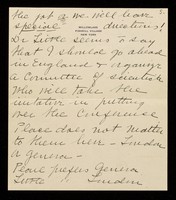 the job or we will have
special questions!
Dr Little seems to say
that I should go ahead
in England & organize
a Committee of scientists
who will take the
initiative in putting
over the Conference
Place does not matter
to them here - London
or Geneva -
Pearl prefers Geneva
Little London